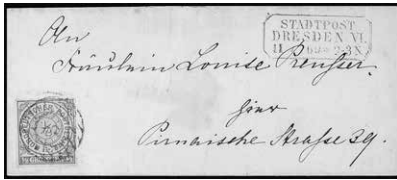 STADTPOST
DRESDEN VI.
An
Fräulein Louise Preusser.
hier
Pirnaische Strasse 29.